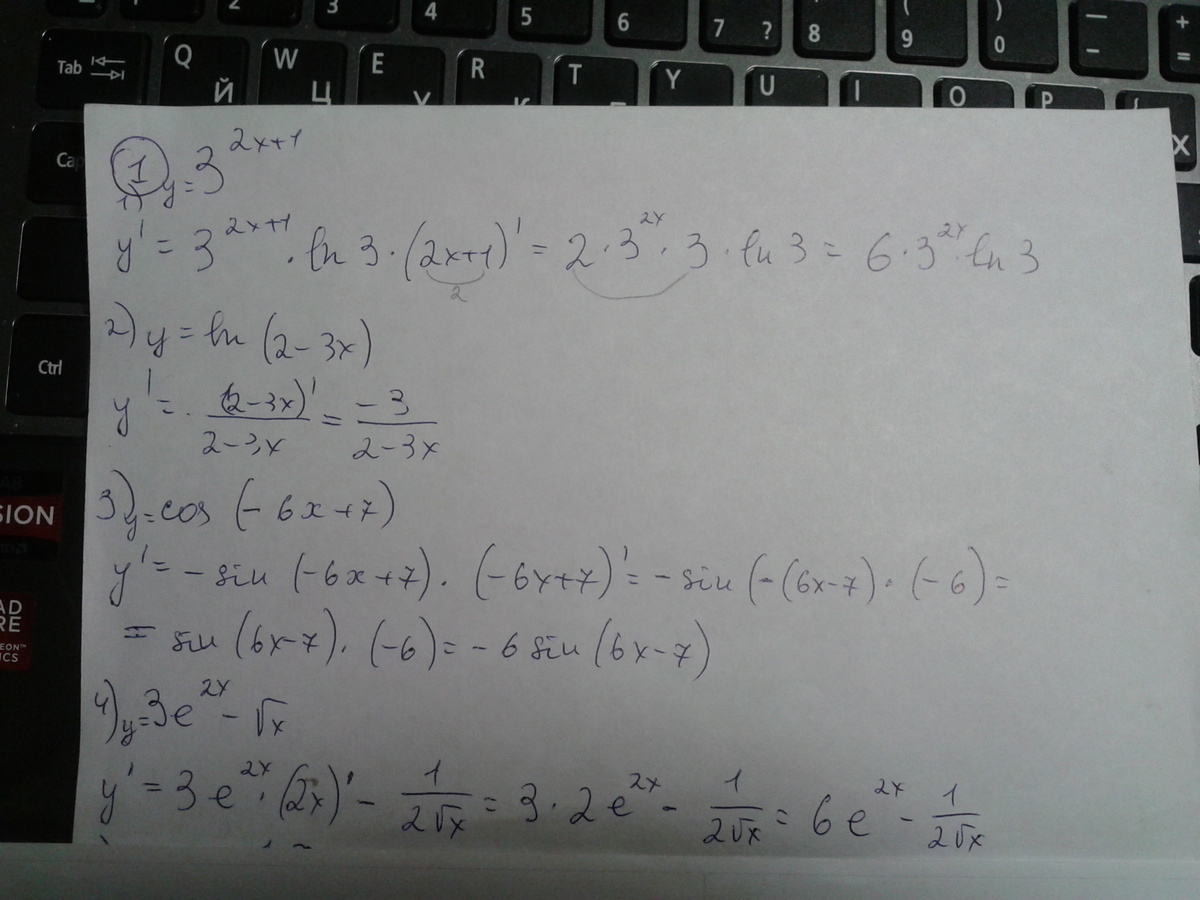 2 3 4 5 6 7 ? 8 ( 9 ) 0 — - + =
Tab Q Й W Ц E У R К T Y U I O P [ X
Cap
Ctrl
SION
AD
RE
EON™
ICS
1
1) y = 3^{2x+1}
y' = 3^{2x+1} · ln 3 · (2x+1)' = 2 · 3^{2x} · 3 · ln 3 = 6 · 3^{2x} · ln 3
2
2) y = ln (2 - 3x)
y' = \frac{(2-3x)'}{2-3x} = \frac{-3}{2-3x}
3) y = cos (- 6x + 7)
y' = - sin (-6x+7) · (-6x+7)' = - sin (-(6x-7) · (-6) =
= sin (6x-7) · (-6) = - 6 sin (6x-7)
4) y = 3e^{2x} - √x
y' = 3e^{2x} · (2x)' - \frac{1}{2√x} = 3 · 2e^{2x} - \frac{1}{2√x} = 6e^{2x} - \frac{1}{2√x}